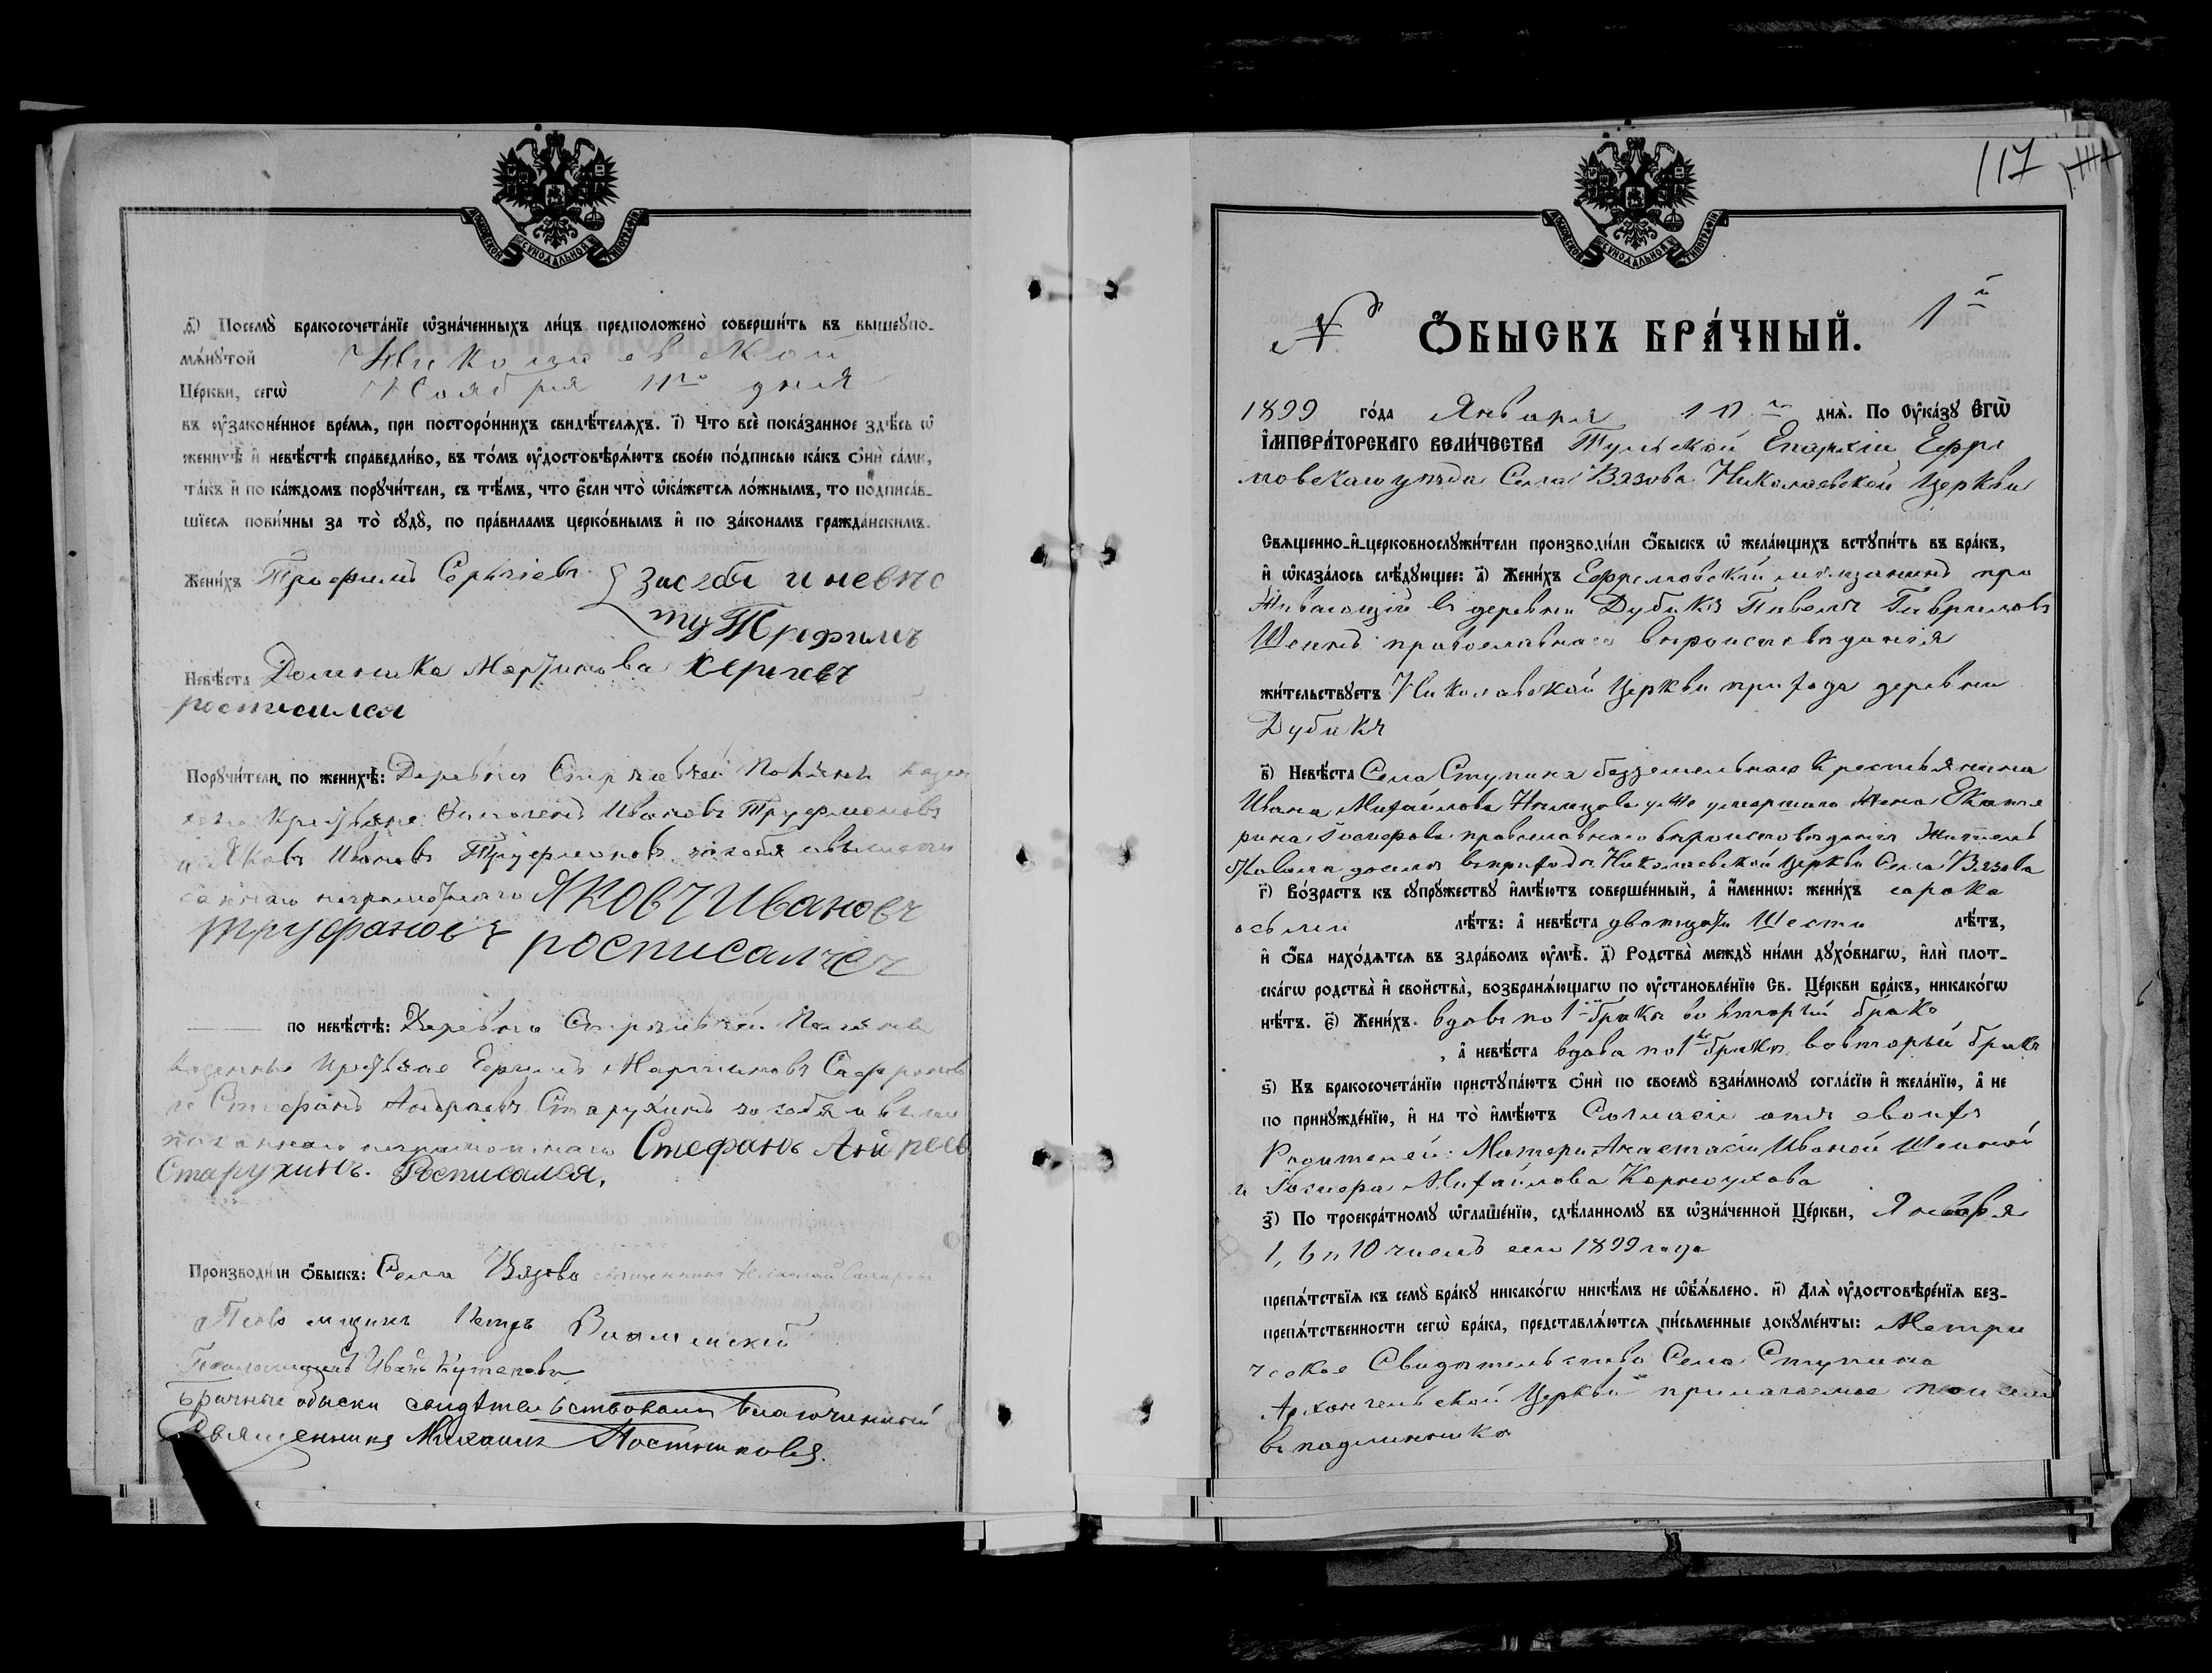 МОСКОВСКОЙ СѴНОДАЛЬНОЙ ТИПОГРАФІИ
ѳ҃) Посемꙋ̀ бракосочета́нїе ѡ҆зна́ченныхъ ли́цъ предположено̀ соверши́ть въ вышеꙋпо-
мѧ́нꙋтой Николаевской
Це́ркви, сегѡ̀ Ноября 11го дня
въ ᲂу҆зако́ненное вре́мѧ, при посторо́ннихъ свидѣ́телѧхъ. і҃) Что всѐ пока́занное здѣ́сь ѡ҆
женихѣ̀ и҆ невѣ́стѣ справедли́во, въ то́мъ ᲂу҆достовѣрѧ́ютъ свое́ю по́дписью ка́къ ѻ҆нѝ са́ми,
та́къ и҆ по ка́ждомъ порꙋчи́тели, съ тѣ́мъ, что є҆́сли что̀ ѡ҆ка́жетсѧ ло́жнымъ, то подписа́в-
шїесѧ пови́нны за то̀ сꙋдꙋ̀, по пра́виламъ церко́внымъ и҆ по зако́намъ гражда́нскимъ.
Жени́хъ Трофимъ Сергѣевъ За себя и невѣс
ту Трофимъ
Невѣ́ста Домника Мартинова Сергѣевъ
росписился
Порꙋчи́тели по женихѣ̀: Деревни
Ивановъ Труфоновъ
и Яковъ Ивановъ Труфоновъ за себя
неграмотнаго Яковъ Ивановъ
труфановъ росписалсе
по невѣ́стѣ: Деревни
Мартиновъ Сафроновъ
и Стефанъ Андреевъ Старухинъ за себя и
неграмотнаго Стефанъ Андреевъ
Старухинъ. Росписался.
Производи́ли ѻ҆́быскъ: Села Вязова священникъ Николай
Псаломщикъ Петръ
Псаломщикъ Иванъ Кутеповъ
Брачные обыски свидѣтельствовалъ благочинный
Священникъ Михаилъ Постниковъ.
117
МОСКОВСКОЙ СѴНОДАЛЬНОЙ ТИПОГРАФІИ
№ Ѻ҆́БЫСКЪ БРА́ЧНЫЙ. 1й
1899 го́да Января 11го днѧ̀. По ᲂу҆ка́зꙋ є҆гѡ̀
і҆мпера́торскаго вели́чества Тульской Епархіи Ефре
мовскаго уѣзда Села Вязова Николаевской Церкви
Свѧще́нно-и҆-церковнослꙋжи́тели производи́ли ѻ҆́быскъ ѡ҆ жела́ющихъ встꙋпи́ть въ бра́къ,
и҆ ѡ҆каза́лось слѣ́дꙋющее: а҃) Жени́хъ Ефремовскій мѣщанинъ про
живающій въ деревни Дубикъ Павелъ Гавриловъ
Шеинъ православнаго вѣроисповѣданія
жи́тельствꙋетъ Николаевской Церкви прихода деревни
Дубикъ
в҃) Невѣ́ста Села Ступина безземельнаго Крестьянина
Ивана Михайлова уже умершаго жена Екате
рина Іосифова православнаго вѣроисповѣданія жител
ьствовала доселѣ въ приходѣ Николаевской Церкви Села Вязова
г҃) Во́зрастъ къ сꙋпрꙋ́жествꙋ и҆мѣ́ютъ соверше́нный, а҆ и҆́меннѡ: жени́хъ сорока
осьми лѣ́тъ: а҆ невѣ́ста двадцати Шести лѣ́тъ,
и҆ ѻ҆́ба нахо́дѧтсѧ въ здра́вомъ ᲂу҆мѣ̀. д҃) Родства̀ междꙋ̀ ни́ми дꙋхо́внагѡ, и҆лѝ плот-
ска́гѡ родства̀ и҆ свойства̀, возбранѧ́ющагѡ по ᲂу҆становле́нїю Св. Це́ркви бра́къ, никако́гѡ
нѣ́тъ. є҃) Жени́хъ вдовъ по 1мъ бракѣ во вторый бракъ
, а҆ невѣ́ста вдова по 1мъ бракѣ во вторый бракъ
ѕ҃) Къ бракосочета́нїю пристꙋпа́ютъ ѻ҆нѝ по своемꙋ̀ взаи́мномꙋ согла́сїю и҆ жела́нїю, а҆ не
по принꙋжде́нїю, и҆ на то̀ и҆мѣ́ютъ Согласіе отъ своихъ
Родителей: Матери Анастасіи Ивановой Шеиной
и Іосифа Михайлова Корноухова
з҃) По троекра́тномꙋ ѡ҆глаше́нїю, сдѣ́ланномꙋ въ ѡ҆зна́ченной Це́ркви, Января
1, 6 и 10 чиселъ сего 1899 года
препѧ́тствїѧ къ семꙋ̀ бра́кꙋ никако́гѡ никѣ́мъ не ѡ҆б̾ѧ́влено. и҃) Длѧ̀ ᲂу҆достовѣре́нїѧ без-
препѧ́тственности сегѡ̀ бра́ка, представлѧ́ютсѧ пи́сьменные докꙋме́нты: Метри
ческое Свидѣтельство Села Ступина
Архангельской Церкви прилагаемое при семъ
въ подлинникѣ